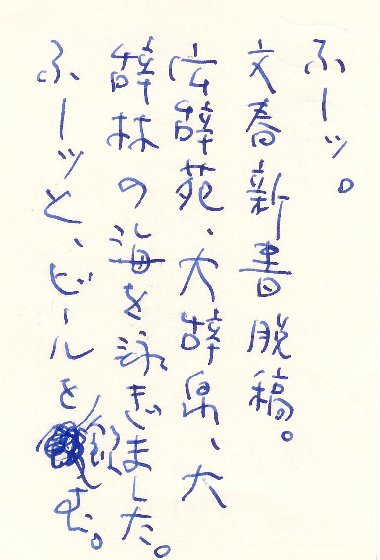 ふーッ。
文春新書脱稿。
広辞苑、大辞泉、大
辞林の海を泳ぎました。
ふーッと、ビールを飲む。